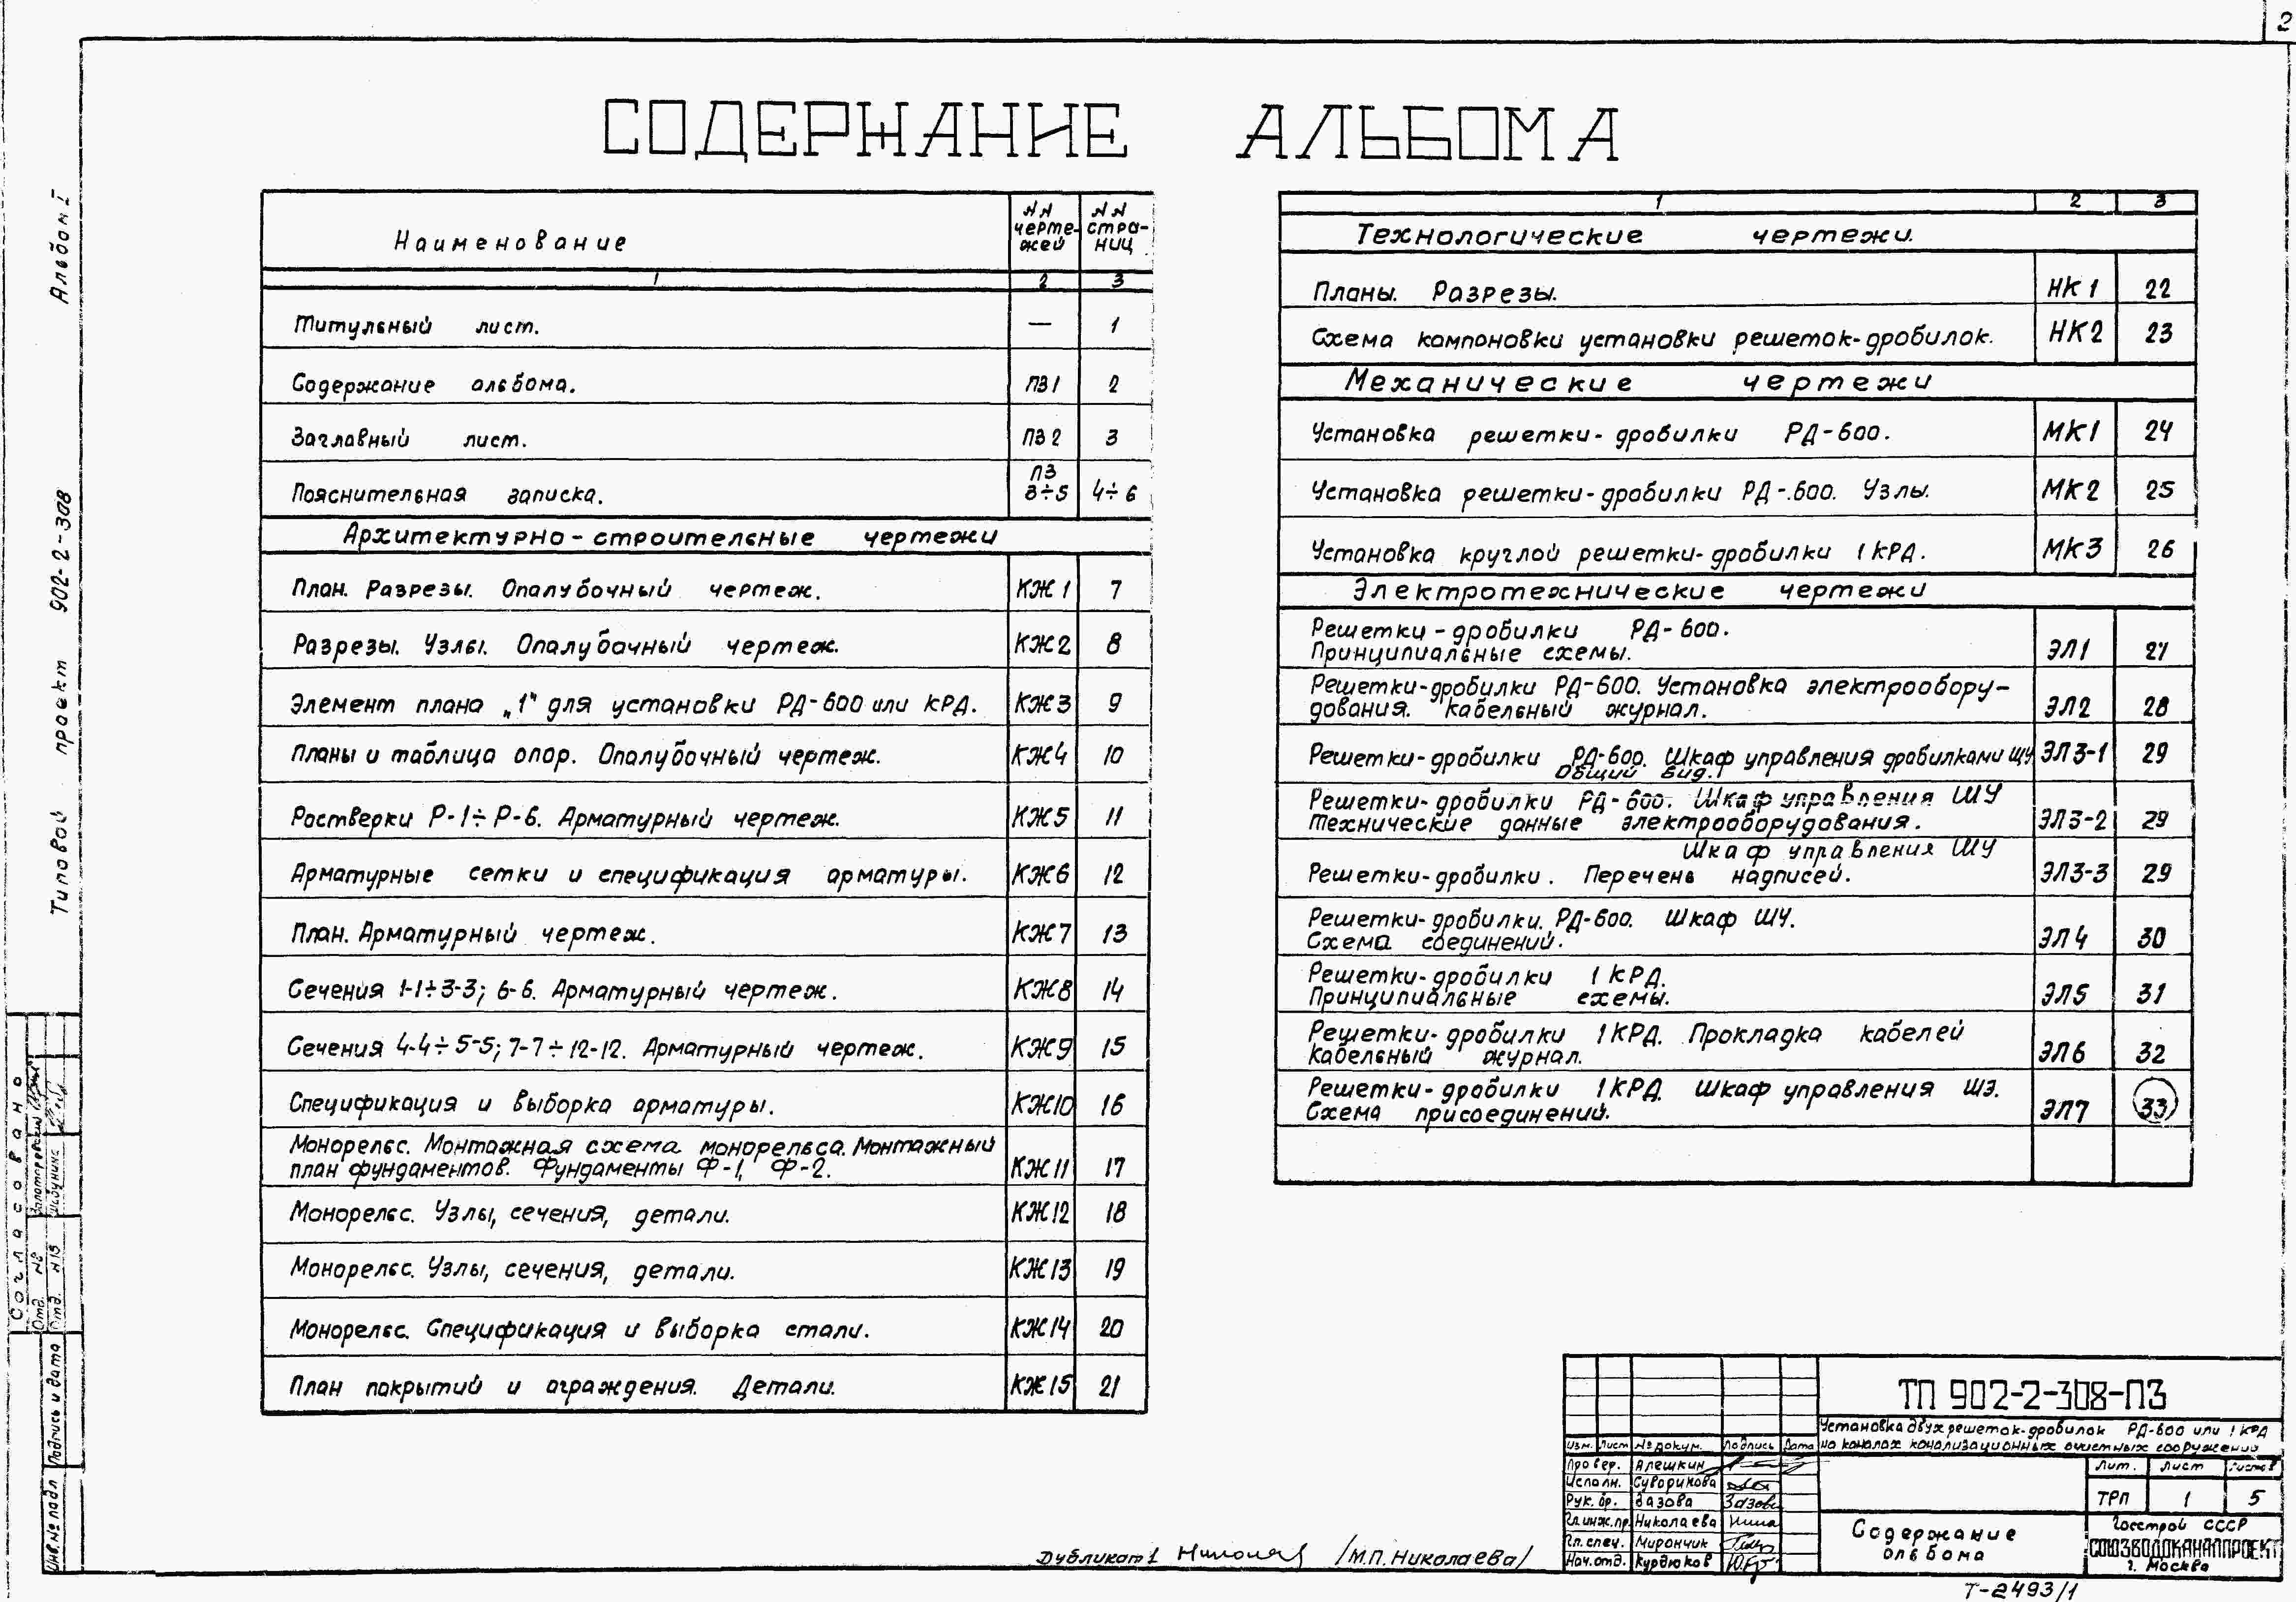 2
СОДЕРЖАНИЕ АЛЬБОМА
Наименование
№№ чертежей
№№ страниц
1 2 3
Титульный лист. — 1
Содержание альбома. ПЗ 1 2
Заглавный лист. ПЗ 2 3
Пояснительная записка. ПЗ 3÷5 4÷6
Архитектурно-строительные чертежи
План. Разрезы. Опалубочный чертеж. КЖ 1 7
Разрезы. Узлы. Опалубочный чертеж. КЖ 2 8
Элемент плана „1" для установки РД-600 или КРД. КЖ 3 9
Планы и таблица опор. Опалубочный чертеж. КЖ 4 10
Ростверки Р-1÷Р-6. Арматурный чертеж. КЖ 5 11
Арматурные сетки и спецификация арматуры. КЖ 6 12
План. Арматурный чертеж. КЖ 7 13
Сечения 1-1÷3-3; 6-6. Арматурный чертеж. КЖ 8 14
Сечения 4-4÷5-5; 7-7÷12-12. Арматурный чертеж. КЖ 9 15
Спецификация и выборка арматуры. КЖ 10 16
Монорельс. Монтажная схема монорельса. Монтажный
план фундаментов. Фундаменты Ф-1, Ф-2. КЖ 11 17
Монорельс. Узлы, сечения, детали. КЖ 12 18
Монорельс. Узлы, сечения, детали. КЖ 13 19
Монорельс. Спецификация и выборка стали. КЖ 14 20
План покрытий и ограждения. Детали. КЖ 15 21
1 2 3
Технологические чертежи.
Планы. Разрезы. НК 1 22
Схема компоновки установки решеток-дробилок. НК 2 23
Механические чертежи
Установка решетки-дробилки РД-600. МК 1 24
Установка решетки-дробилки РД-600. Узлы. МК 2 25
Установка круглой решетки-дробилки 1 КРД. МК 3 26
Электротехнические чертежи
Решетки-дробилки РД-600.
Принципиальные схемы. ЭЛ1 27
Решетки-дробилки РД-600. Установка электрообору-
дования. Кабельный журнал. ЭЛ2 28
Решетки-дробилки РД-600. Шкаф управления дробилками ЩУ ЭЛ3-1 29
Общий вид.
Решетки-дробилки РД-600. Шкаф управления ШУ
Технические данные электрооборудования. ЭЛ3-2 29
Шкаф управления ШУ
Решетки-дробилки. Перечень надписей. ЭЛ3-3 29
Решетки-дробилки. РД-600. Шкаф ШУ.
Схема соединений. ЭЛ4 30
Решетки-дробилки 1 КРД.
Принципиальные схемы. ЭЛ5 31
Решетки-дробилки 1 КРД. Прокладка кабелей
Кабельный журнал. ЭЛ6 32
Решетки-дробилки 1 КРД. Шкаф управления ШЭ.
Схема присоединений. ЭЛ7 33
Альбом I
Типовой проект 902-2-308
Согласовано
Отд. №8
Отд. №13
Подпись и дата
Инв.№ подл
ТП 902-2-308-ПЗ
Установка двух решеток-дробилок РД-600 или 1 КРД
на каналах канализационных очистных сооружений
Изм. Лист № докум. Подпись Дата
Провер. Алешкин
Исполн. Суворикова
Рук. бр. Зазова
Гл.инж.пр. Николаева
Гл.спец. Мирончик
Нач.отд. Курдюков
Лит. Лист Листов
ТРП 1 5
Содержание
альбома
Госстрой СССР
СОЮЗВОДОКАНАЛПРОЕКТ
г. Москва
Дубликат 1 /М.П. Николаева/
Т-2493/1